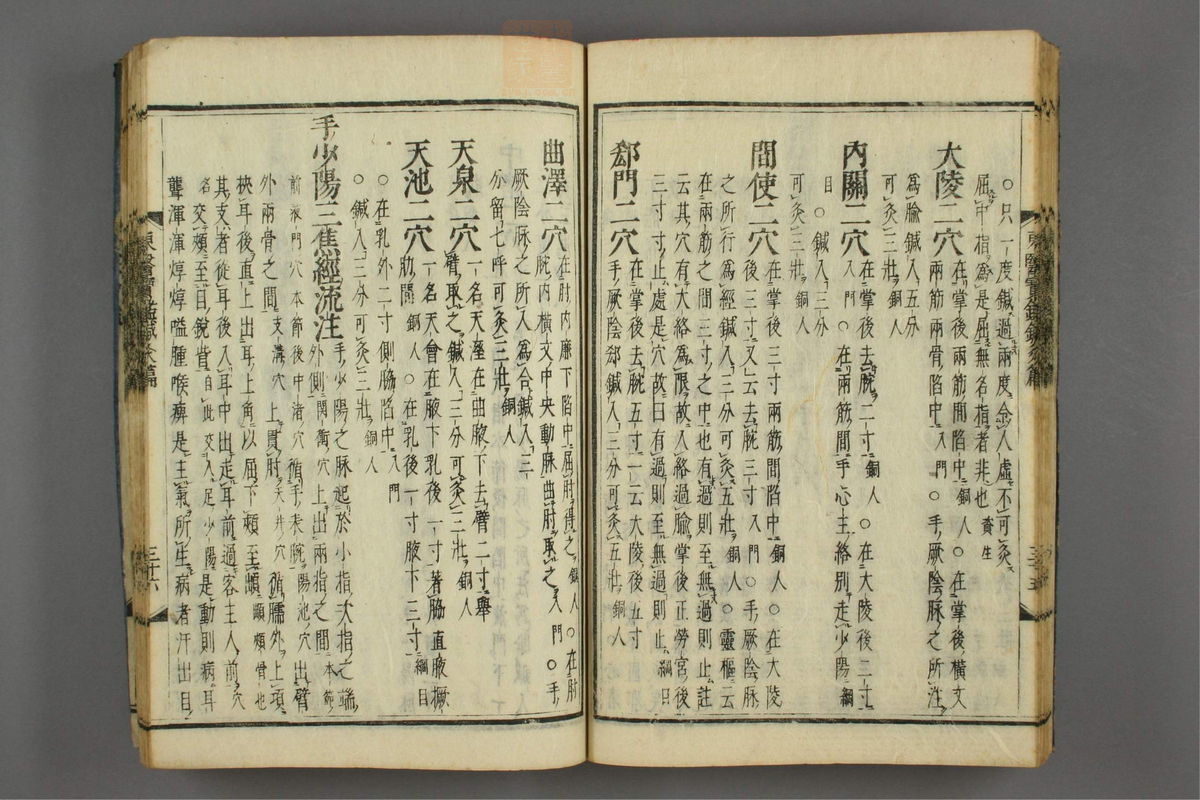 ○只一度鍼過兩度令人虛不可灸
屈中指爲是屈無名指者非也資生
大陵二穴在掌後兩筋間陷中銅人○在掌後橫文
兩筋兩骨陷中入門○手厥陰脉之所注
爲腧鍼入五分
可灸三壯銅人
內關二穴在掌後去腕二寸銅人○在大陵後二寸
入門○在兩筋間手心主絡別走少陽綱
目○鍼入三分
可灸三壯銅人
間使二穴在掌後三寸兩筋間陷中銅人○在大陵
後三寸又云去腕三寸入門○手厥陰脉
之所行爲經鍼入三分可灸五壯銅人○靈樞云
在兩筋之間三寸之中也有過則至無過則止註
云其穴有大絡爲限故入絡過腧掌後正勞宮後
三寸寸止處是穴故曰有過則至無過則止綱目
郄門二穴在掌後去腕五寸一云大陵後五寸
手厥陰郄鍼入三分可灸五壯銅人
曲澤二穴在肘內廉下陷中屈肘得之銅人○在肘
腕內橫文中央動脉曲肘取之入門○手
厥陰脉之所入爲合鍼入三
分留七呼可灸三壯銅人
天泉二穴一名天濕在曲腋下去臂二寸擧
臂取之鍼入三分可灸三壯銅人
天池二穴一名天會在腋下乳後一寸著脇直腋撅
肋間銅人○在乳後一寸腋下三寸綱目
○在乳外二寸側脇陷中入門
○鍼入三分可灸三壯銅人
手少陽三焦經流注手少陽之脉起於小指次指之端
外側關衝穴上出兩指之間本節
前液門穴本節後中渚穴循手表腕陽池穴出臂
外兩骨之間支溝穴上貫肘天井穴循臑外上項
俠耳後直上出耳上角以屈下頰至䪼䪼頰骨也
其支者從耳後入耳中出走耳前過客主人前穴
名交頰至目銳眥自此交入足少陽是動則病耳
聾渾渾焞焞嗌腫喉痺是主氣所生病者汗出目
三十六